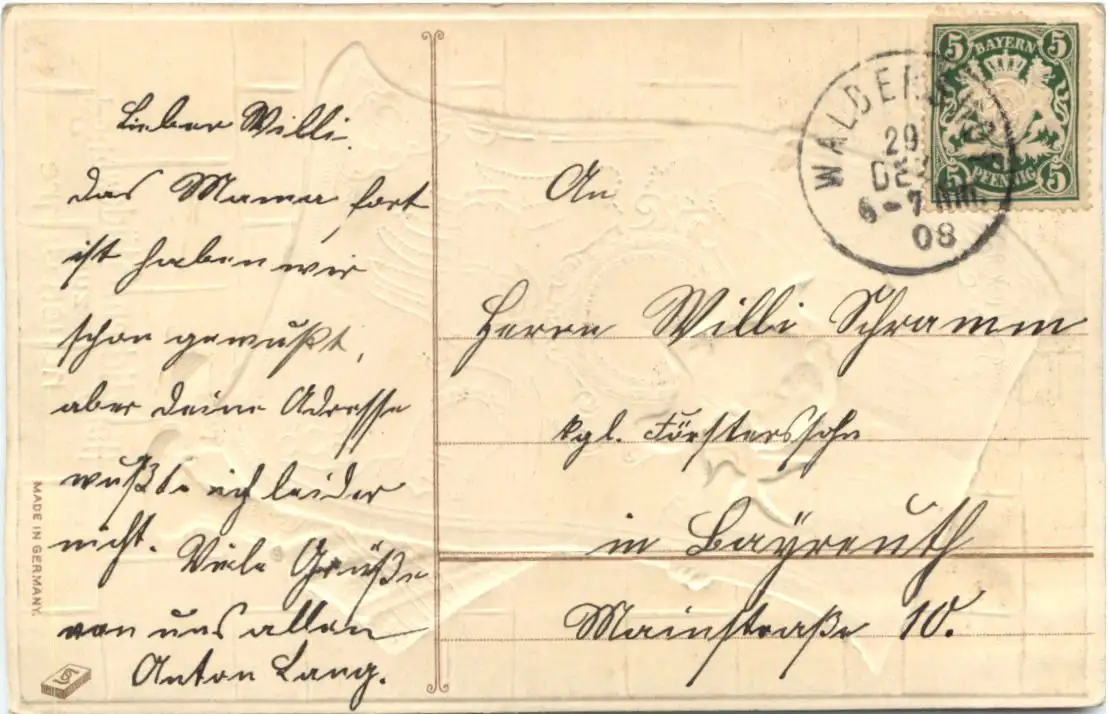 Lieber Willi.
Das Mama fort
ist haben wir
schon gewußt,
aber deine Adresse
wußte ich leider
nicht. Viele Grüße
von uns allen
Anton Lang.
MADE IN GERMANY.
5 BAYERN 5
5 PFENNIG 5
WALDER
29.
DEZ
6-7 Nm.
08
An
Herrn Willi Schramm
kgl. Förstersohn
in Bayreuth
Mainstraße 10.